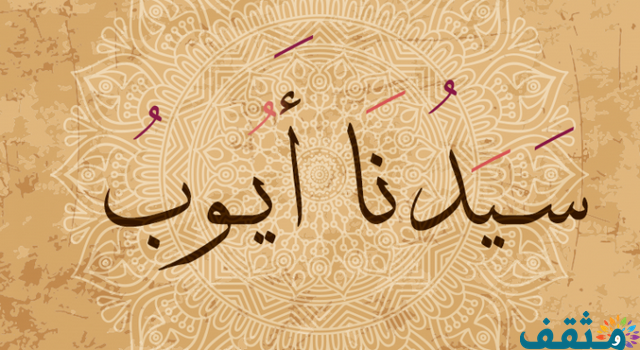 سَيَدُنَا أَيُوبُ
مثقف